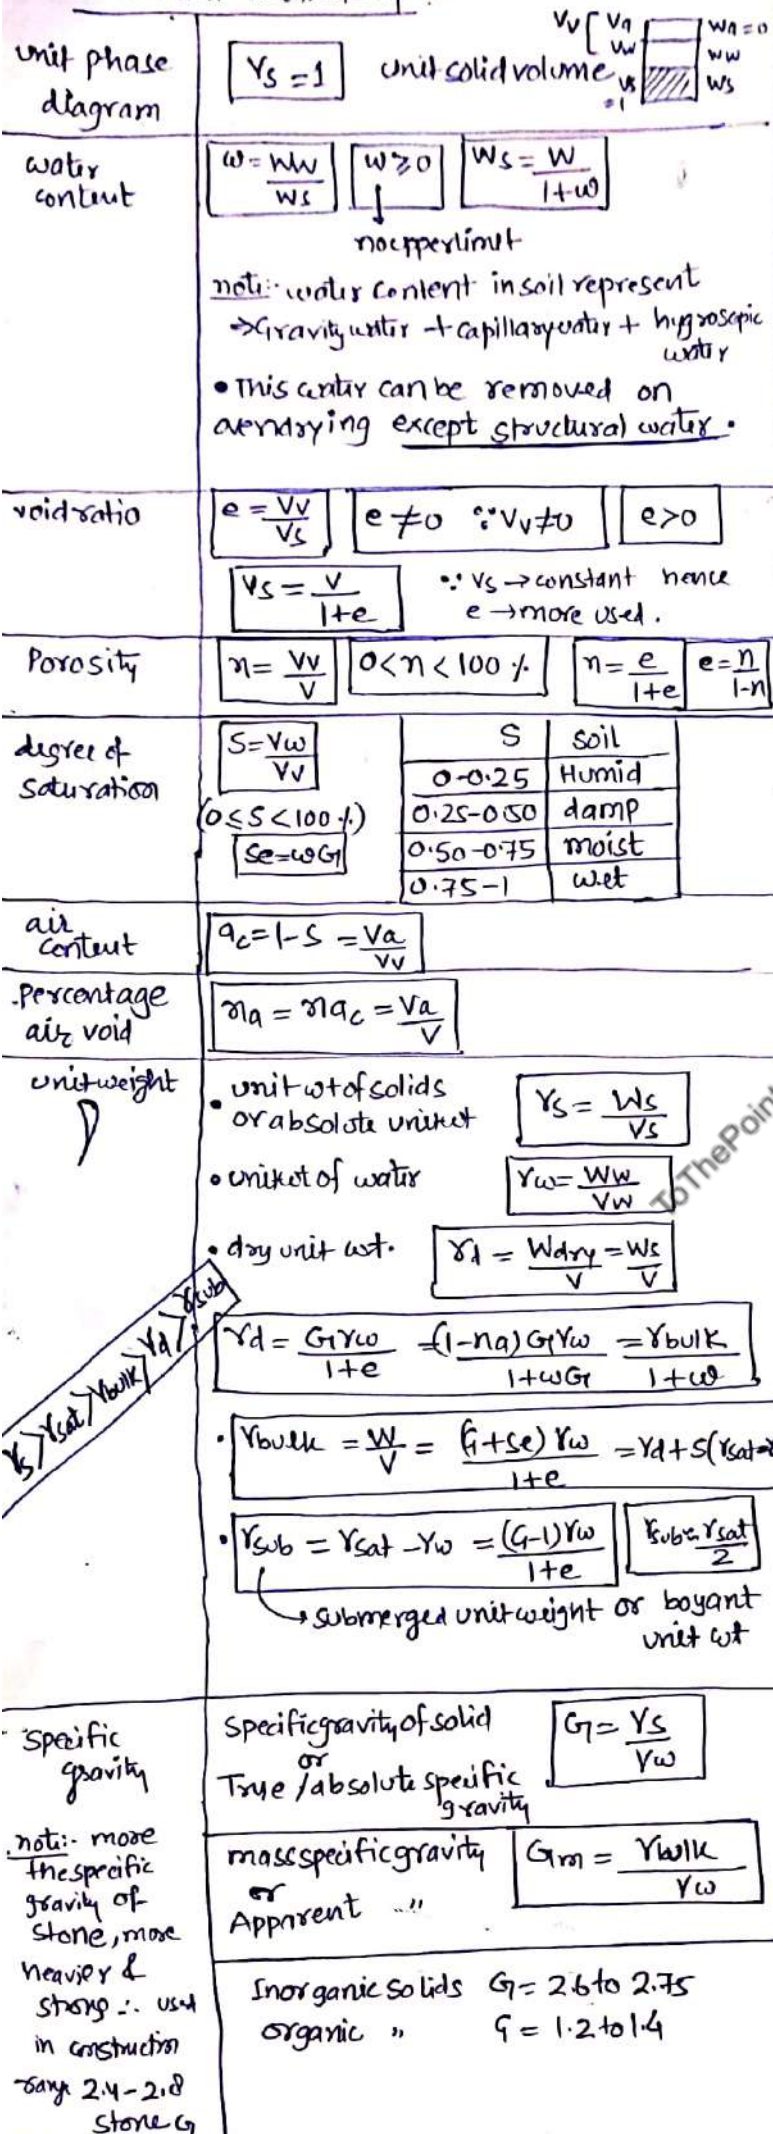 unit phase
diagram
Vs = 1
unit solid volume
Vv
Va
Vw
Vs
=1
Wa=0
Ww
Ws
water
content
ω = Ww/Ws
ω ≥ 0
Ws = W/(1+ω)
no upper limit
note:- water content in soil represent
⇒ Gravity water + capillary water + hygroscopic
water
• This water can be removed on
ovendrying except structural water.
void ratio
e = Vv/Vs
e ≠ 0 ∵ Vv ≠ 0
e > 0
Vs = V/(1+e)
∵ Vs → constant hence
e → more used.
Porosity
n = Vv/V
0 < n < 100 %
n = e/(1+e)
e = n/(1-n)
degree of
saturation
S = Vw/Vv
(0 ≤ S < 100 %)
Se = ωG
S soil
0-0.25 Humid
0.25-0.50 damp
0.50-0.75 moist
0.75-1 wet
air
content
ac = 1-S = Va/Vv
Percentage
air void
na = nac = Va/V
unit weight
• unit wt of solids
or absolute unit wt
γs = Ws/Vs
• unit wt of water
γω = Ww/Vw
• dry unit wt.
γd = Wdry/V = Ws/V
γs > γsat > γbulk > γd > γsub
γd = Gγω/(1+e) = (1-na)Gγω/(1+ωG) = γbulk/(1+ω)
• γbulk = W/V = (G+Se)γω/(1+e) = γd + S(γsat-
• γsub = γsat - γω = (G-1)γω/(1+e)
γsub ≈ γsat/2
→ submerged unit weight or boyant
unit wt
ToThePoint
Specific
gravity
Specific gravity of solid
or
True / absolute specific
gravity
G = γs/γω
note:- more
the specific
gravity of
stone, more
heavier &
strong ∴ used
in construction
range 2.4-2.8
stone G
mass specific gravity
or
Apparent "
Gm = γbulk/γω
Inorganic solids G = 2.6 to 2.75
organic " G = 1.2 to 1.4